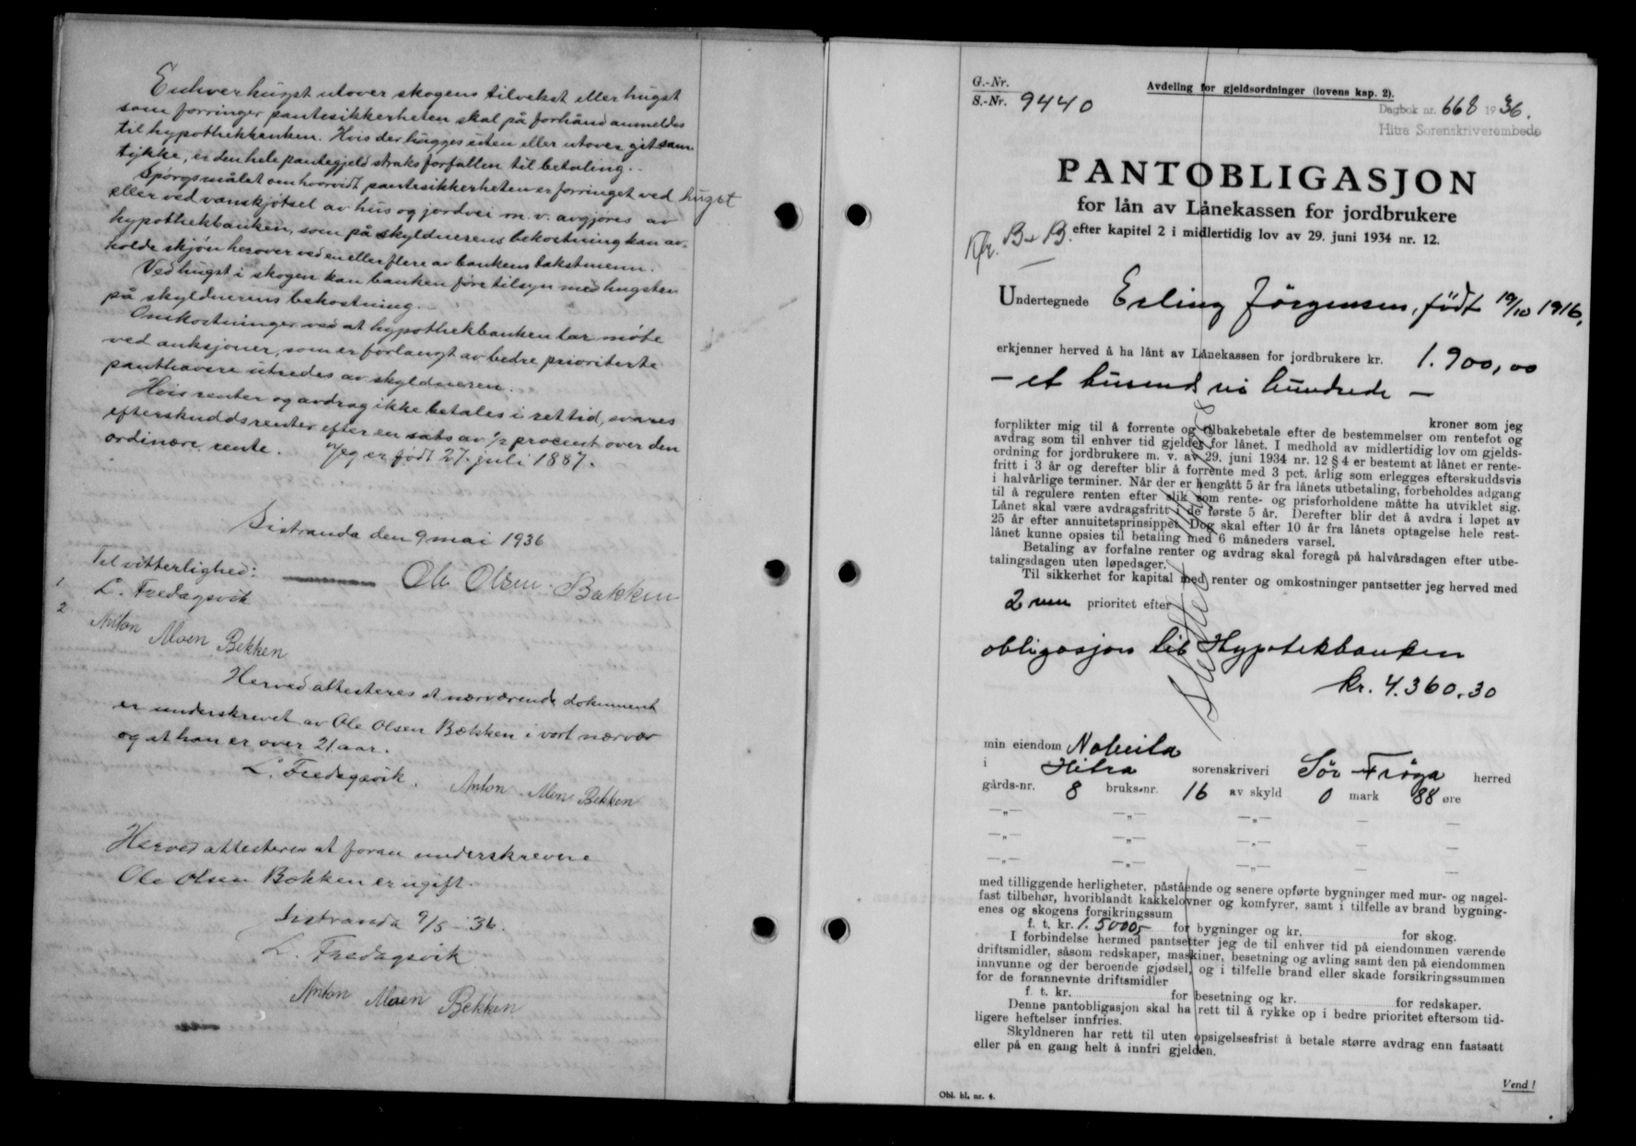 Enhver hugst utover skogens tilvekst eller hugst
som forringer pantesikkerheten skal på forhånd anmeldes
til hypothekbanken. Hvis der hugges uten eller utover git sam-
tykke, er den hele pantegjeld straks forfallen til betaling.
Spørgsmålet om hvorvidt pantesikkerheten er forringet ved hugst
eller ved vanskjøtsel av hus og jordvei m.v. avgjøres av
hypothekbanken, som på skyldnerens bekostning kan av-
holde skjøn herover ved en eller flere av bankens takstmenn.
Ved hugst i skogen kan banken føre tilsyn med hugsten
på skyldnerens bekostning.
Omkostninger ved at hypothekbanken lar møte
ved auksjoner, som er forlangt av bedre prioriterte
panthavere utredes av skyldneren.
Hvis renter og avdrag ikke betales i ret tid, svares
efterskuddsrenter efter en sats av 1/2 procent over den
ordinære rente. Jeg er født 27. juli 1887.
Sistranda den 9 mai 1936
Til vitterlighed: Ole Olsen Bekken
1 L. Fredagsvik
2 Anton Moen Bekken
Herved attesteres at nærværende dokument
er underskrevet av Ole Olsen Bekken i vort nærvær
og at han er over 21 aar.
L. Fredagsvik. Anton Moen Bekken
Herved attesteres at foran underskrevne
Ole Olsen Bekken er ugift.
Sistranda 9/5 - 36.
L. Fredagsvik
Anton Moen Bekken
G.-Nr.
S.-Nr. 9440
Avdeling for gjeldsordninger (lovens kap. 2).
Dagbok nr. 668 1936.
Hitra Sorenskriverembede
PANTOBLIGASJON
for lån av Lånekassen for jordbrukere
efter kapitel 2 i midlertidig lov av 29. juni 1934 nr. 12.
Undertegnede Erling Jörgensen, født 19/10 1916,
erkjenner herved å ha lånt av Lånekassen for jordbrukere kr. 1.900,00
— et tusend ni hundrede —
kroner som jeg
forplikter mig til å forrente og tilbakebetale efter de bestemmelser om rentefot og
avdrag som til enhver tid gjelder for lånet. I medhold av midlertidig lov om gjelds-
ordning for jordbrukere m. v. av 29. juni 1934 nr. 12 § 4 er bestemt at lånet er rente-
fritt i 3 år og derefter blir å forrente med 3 pct. årlig som erlegges efterskuddsvis
i halvårlige terminer. Når der er hengått 5 år fra lånets utbetaling, forbeholdes adgang
til å regulere renten efter slik som rente- og prisforholdene måtte ha utviklet sig.
Lånet skal være avdragsfritt i de første 5 år. Derefter blir det å avdra i løpet av
25 år efter annuitetsprinsippet. Dog skal efter 10 år fra lånets optagelse hele rest-
lånet kunne opsies til betaling med 6 måneders varsel.
Betaling av forfalne renter og avdrag skal foregå på halvårsdagen efter utbe-
talingsdagen uten løpedager.
Til sikkerhet for kapital med renter og omkostninger pantsetter jeg herved med
2 nen prioritet efter
obligasjon til Hypotekbanken
kr. 4.360,30
Slettet
min eiendom
i Hitra sorenskriveri Sör Fröya herred
gårds-nr. 8 bruks-nr. 16 av skyld 0 mark 88 øre
—„— —„— —„— — —
—„— —„— —„— — —
—„— —„— —„— — —
med tilliggende herligheter, påstående og senere opførte bygninger med mur- og nagel-
fast tilbehør, hvoriblandt kakkelovner og komfyrer, samt i tilfelle av brand bygning-
enes og skogens forsikringssum
f. t. kr. 1.500,- for bygninger og kr. for skog.
I forbindelse hermed pantsetter jeg de til enhver tid på eiendommen værende
driftsmidler, såsom redskaper, maskiner, besetning og avling samt den på eiendommen
innvunne og der beroende gjødsel, og i tilfelle brand eller skade forsikringssummen
for de forannevnte driftsmidler
f. t. kr. for besetning og kr. for redskaper.
Denne pantobligasjon skal ha rett til å rykke op i bedre prioritet eftersom tid-
ligere heftelser innfries.
Skyldneren har rett til uten opsigelsesfrist å betale større avdrag enn fastsatt
eller på en gang helt å innfri gjelden.
Vend!
Obl. bl. nr. 4.